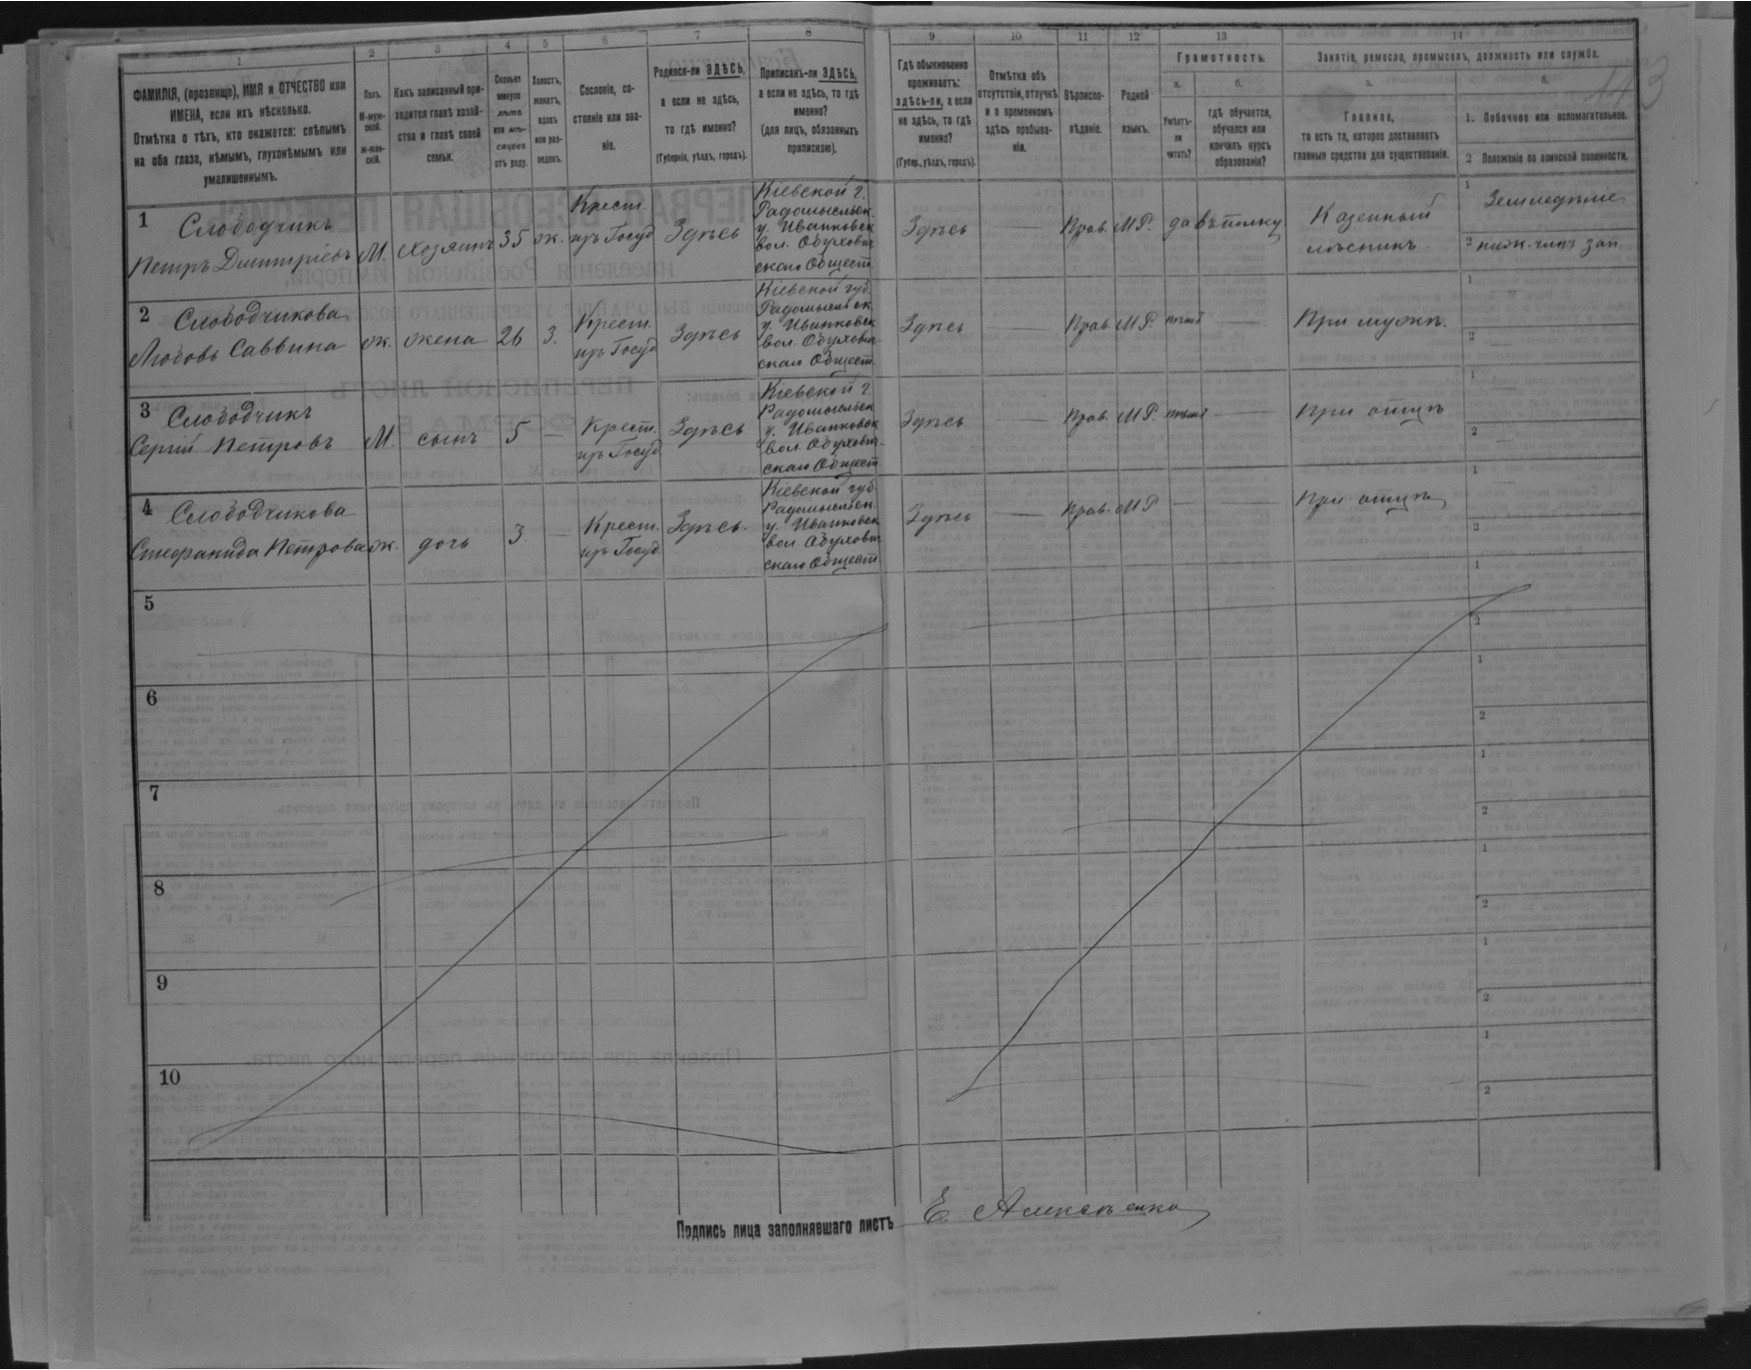 1 2 3 4 5 6 7 8 9 10 11 12 13 14
ФАМИЛІЯ, (прозвище), ИМЯ и ОТЧЕСТВО или
ИМЕНА, если ихъ нѣсколько.
Отмѣтка о тѣхъ, кто окажется: слѣпымъ
на оба глаза, нѣмымъ, глухонѣмымъ или
умалишеннымъ.
Полъ.
М-муж-
ской.
Ж-жен-
скій.
Какъ записанный при-
ходится главѣ хозяй-
ства и главѣ своей
семьи.
Сколько
минуло
лѣтъ
или мѣ-
сяцевъ
отъ роду.
Холостъ,
женатъ,
вдовъ
или раз-
веденъ.
Сословіе, со-
стояніе или зва-
ніе.
Родился-ли ЗДѢСЬ,
а если не здѣсь,
то гдѣ именно?
(Губернія, уѣздъ, городъ).
Приписанъ-ли ЗДѢСЬ,
а если не здѣсь, то гдѣ
именно?
(для лицъ, обязанныхъ
припискою).
Гдѣ обыкновенно
проживаетъ:
здѣсь-ли, а если
не здѣсь, то гдѣ
именно?
(Губер., уѣздъ, городъ).
Отмѣтка объ
отсутствіи, отлучкѣ
и о временномъ
здѣсь пребыва-
ніи.
Вѣроиспо-
вѣданіе.
Родной
языкъ.
Грамотность.
а. б.
Умѣетъ-
ли
читать?
гдѣ обучается,
обучался или
кончилъ курсъ
образованія?
Занятіе, ремесло, промыселъ, должность или служба.
а. б.
Главное,
то есть то, которое доставляетъ
главныя средства для существованія.
1. Побочное или вспомогательное.
2 Положеніе по воинской повинности.
1 Слободчикъ
Петръ Дмитріевъ
М.
Хозяинъ
35
ж.
Крест.
изъ Госуд
Здѣсь
Кіевской г.
Радомысльск.
у. Иванковск
вол. Обухович
скаго Общест.
Здѣсь
—
Прав.
МР.
да
въ полку
Казенный
лѣсникъ
1 Земледѣліе
2 нижн. чинъ зап.
2 Слободчикова
Любовь Саввина
ж.
жена
26
З.
Крест.
изъ Госуд
Здѣсь
Кіевской губ.
Радомысльск
у. Иванковск
вол. Обухович
скаго Общест.
Здѣсь
—
Прав.
МР.
нѣтъ
—
При мужѣ.
1
2 —
3 Слободчикъ
Сергій Петровъ
М.
сынъ
5
—
Крест.
изъ Госуд
Здѣсь
Кіевской г.
Радомысльск
у. Иванковск
вол. Обухович-
скаго Общест
Здѣсь
—
Прав.
МР.
нѣтъ
—
При отцѣ
1
2 —
4 Слободчикова
Стефанида Петрова
ж.
дочь
3
—
Крест.
изъ Госуд
Здѣсь.
Кіевской губ
Радомысльск.
у. Иванковск
вол. Обухович
скаго Общест
Здѣсь
—
Прав.
МР
—
—
При отцѣ
1 —
2
5 1
2
6 1
2
7 1
2
8 1
2
9 1
2
10 1
2
Подпись лица заполнявшаго листъ Е. Алексѣенко